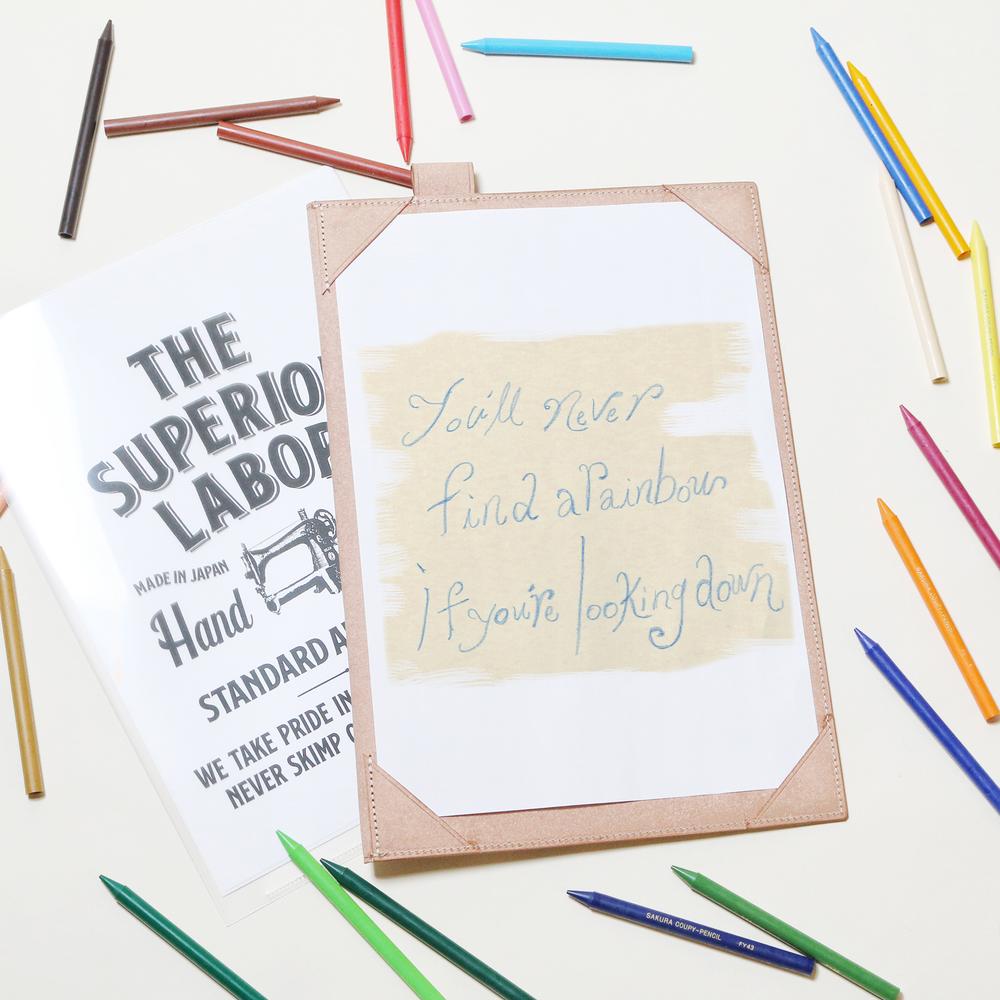 THE
SUPERIO
LABOR
MADE IN JAPAN
Hand
STANDARD A
WE TAKE PRIDE IN
NEVER SKIMP
You'll never
find a rainbow
if you're looking down
SAKURA COUPY-PENCIL FY43